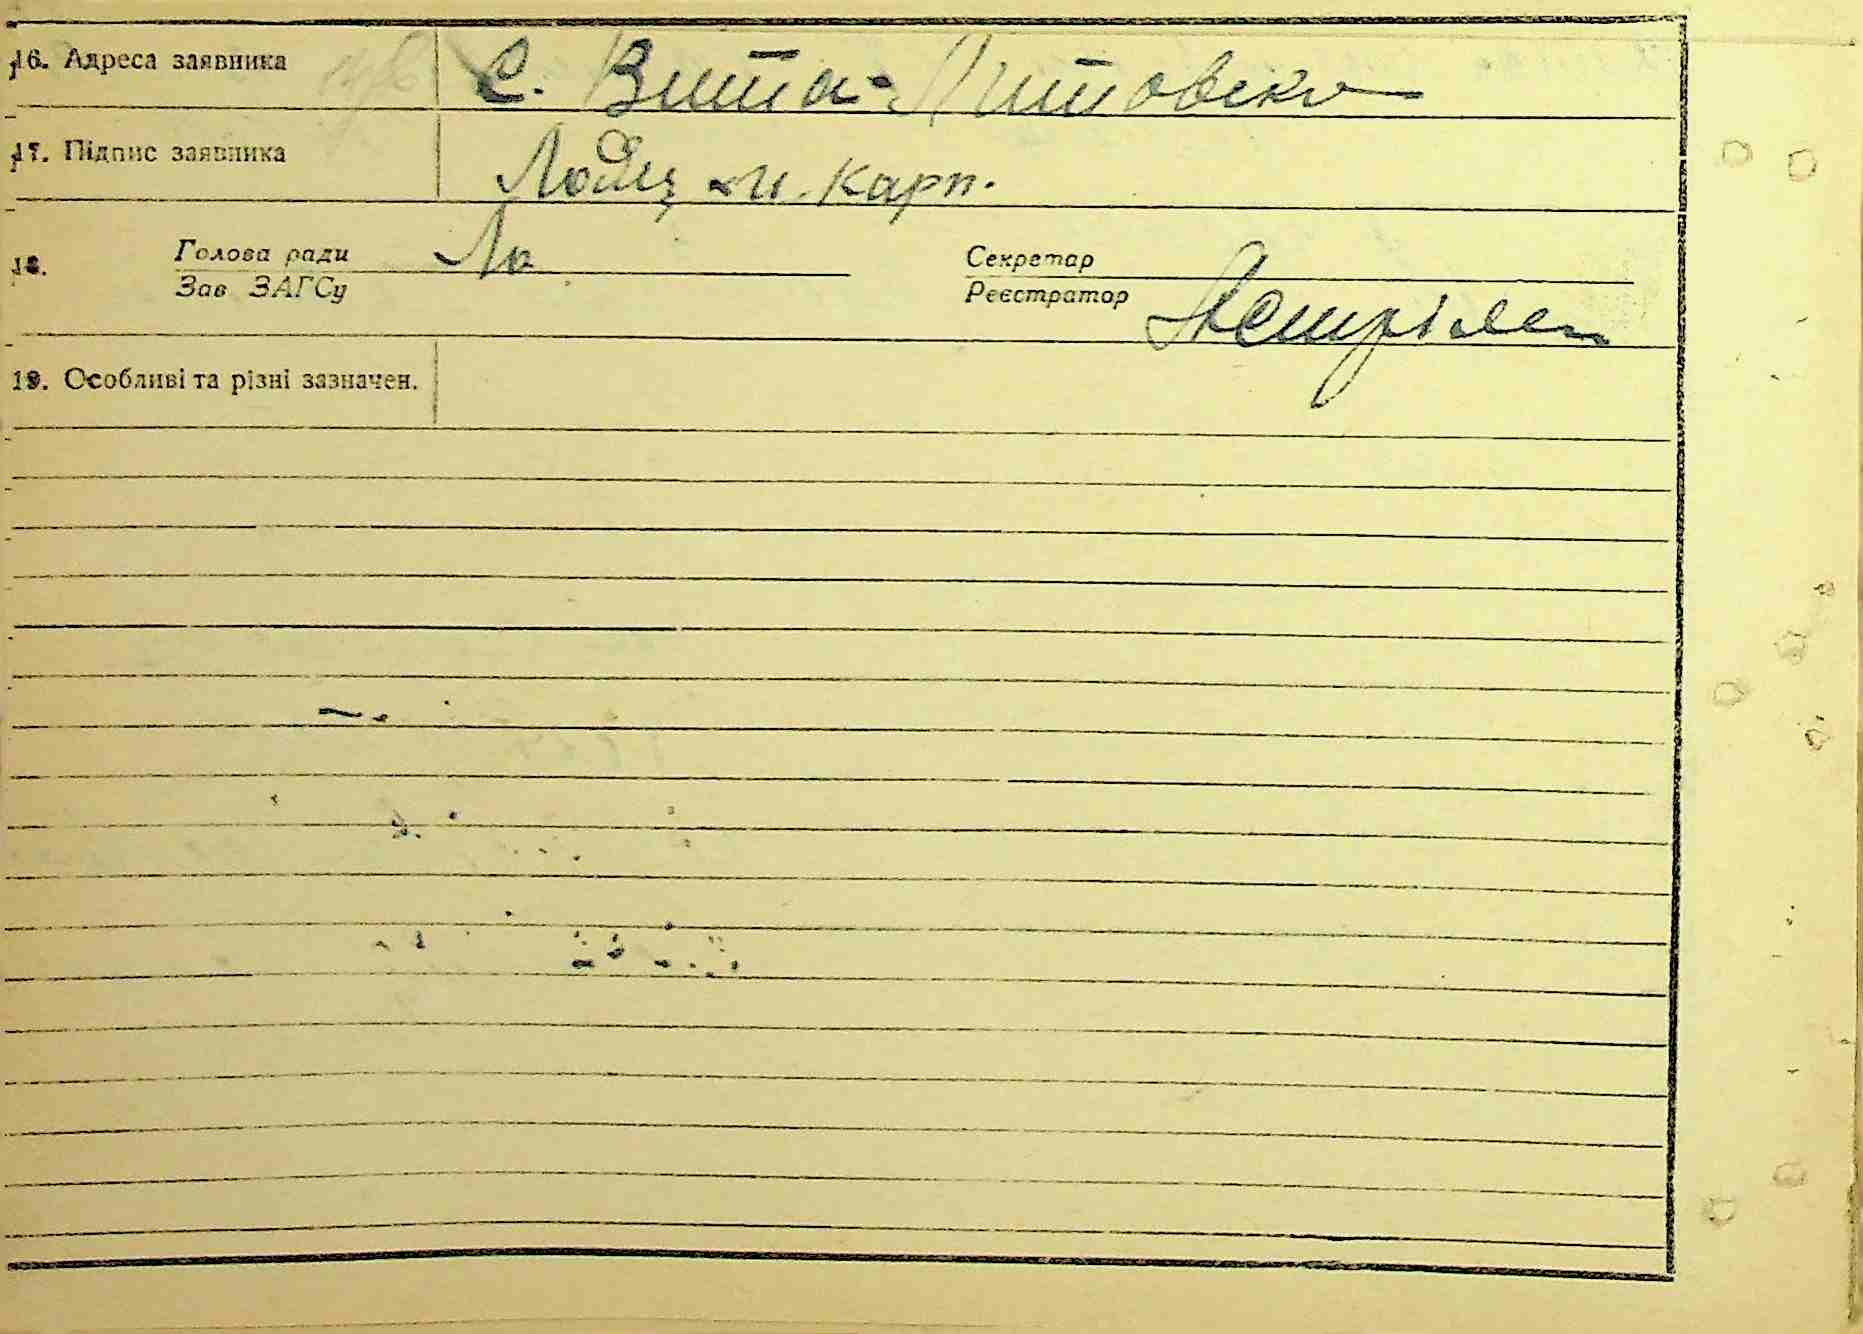 16. Адреса заявника С. Вита-Литовска
17. Підпис заявника Карп.
18. Голова ради Секретар
Зав ЗАГСу Реєстратор
19. Особливі та різні зазначен.